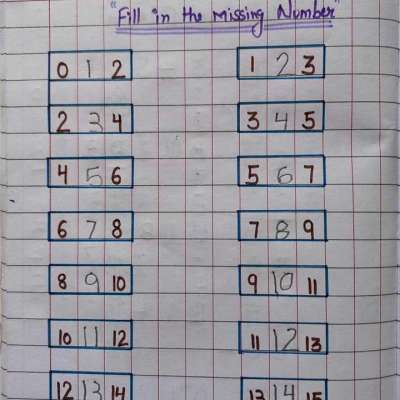 "Fill in the missing Number"
0 1 2 1 2 3
2 3 4 3 4 5
4 5 6 5 6 7
6 7 8 7 8 9
8 9 10 9 10 11
10 11 12 11 12 13
12 13 14 13 14 15